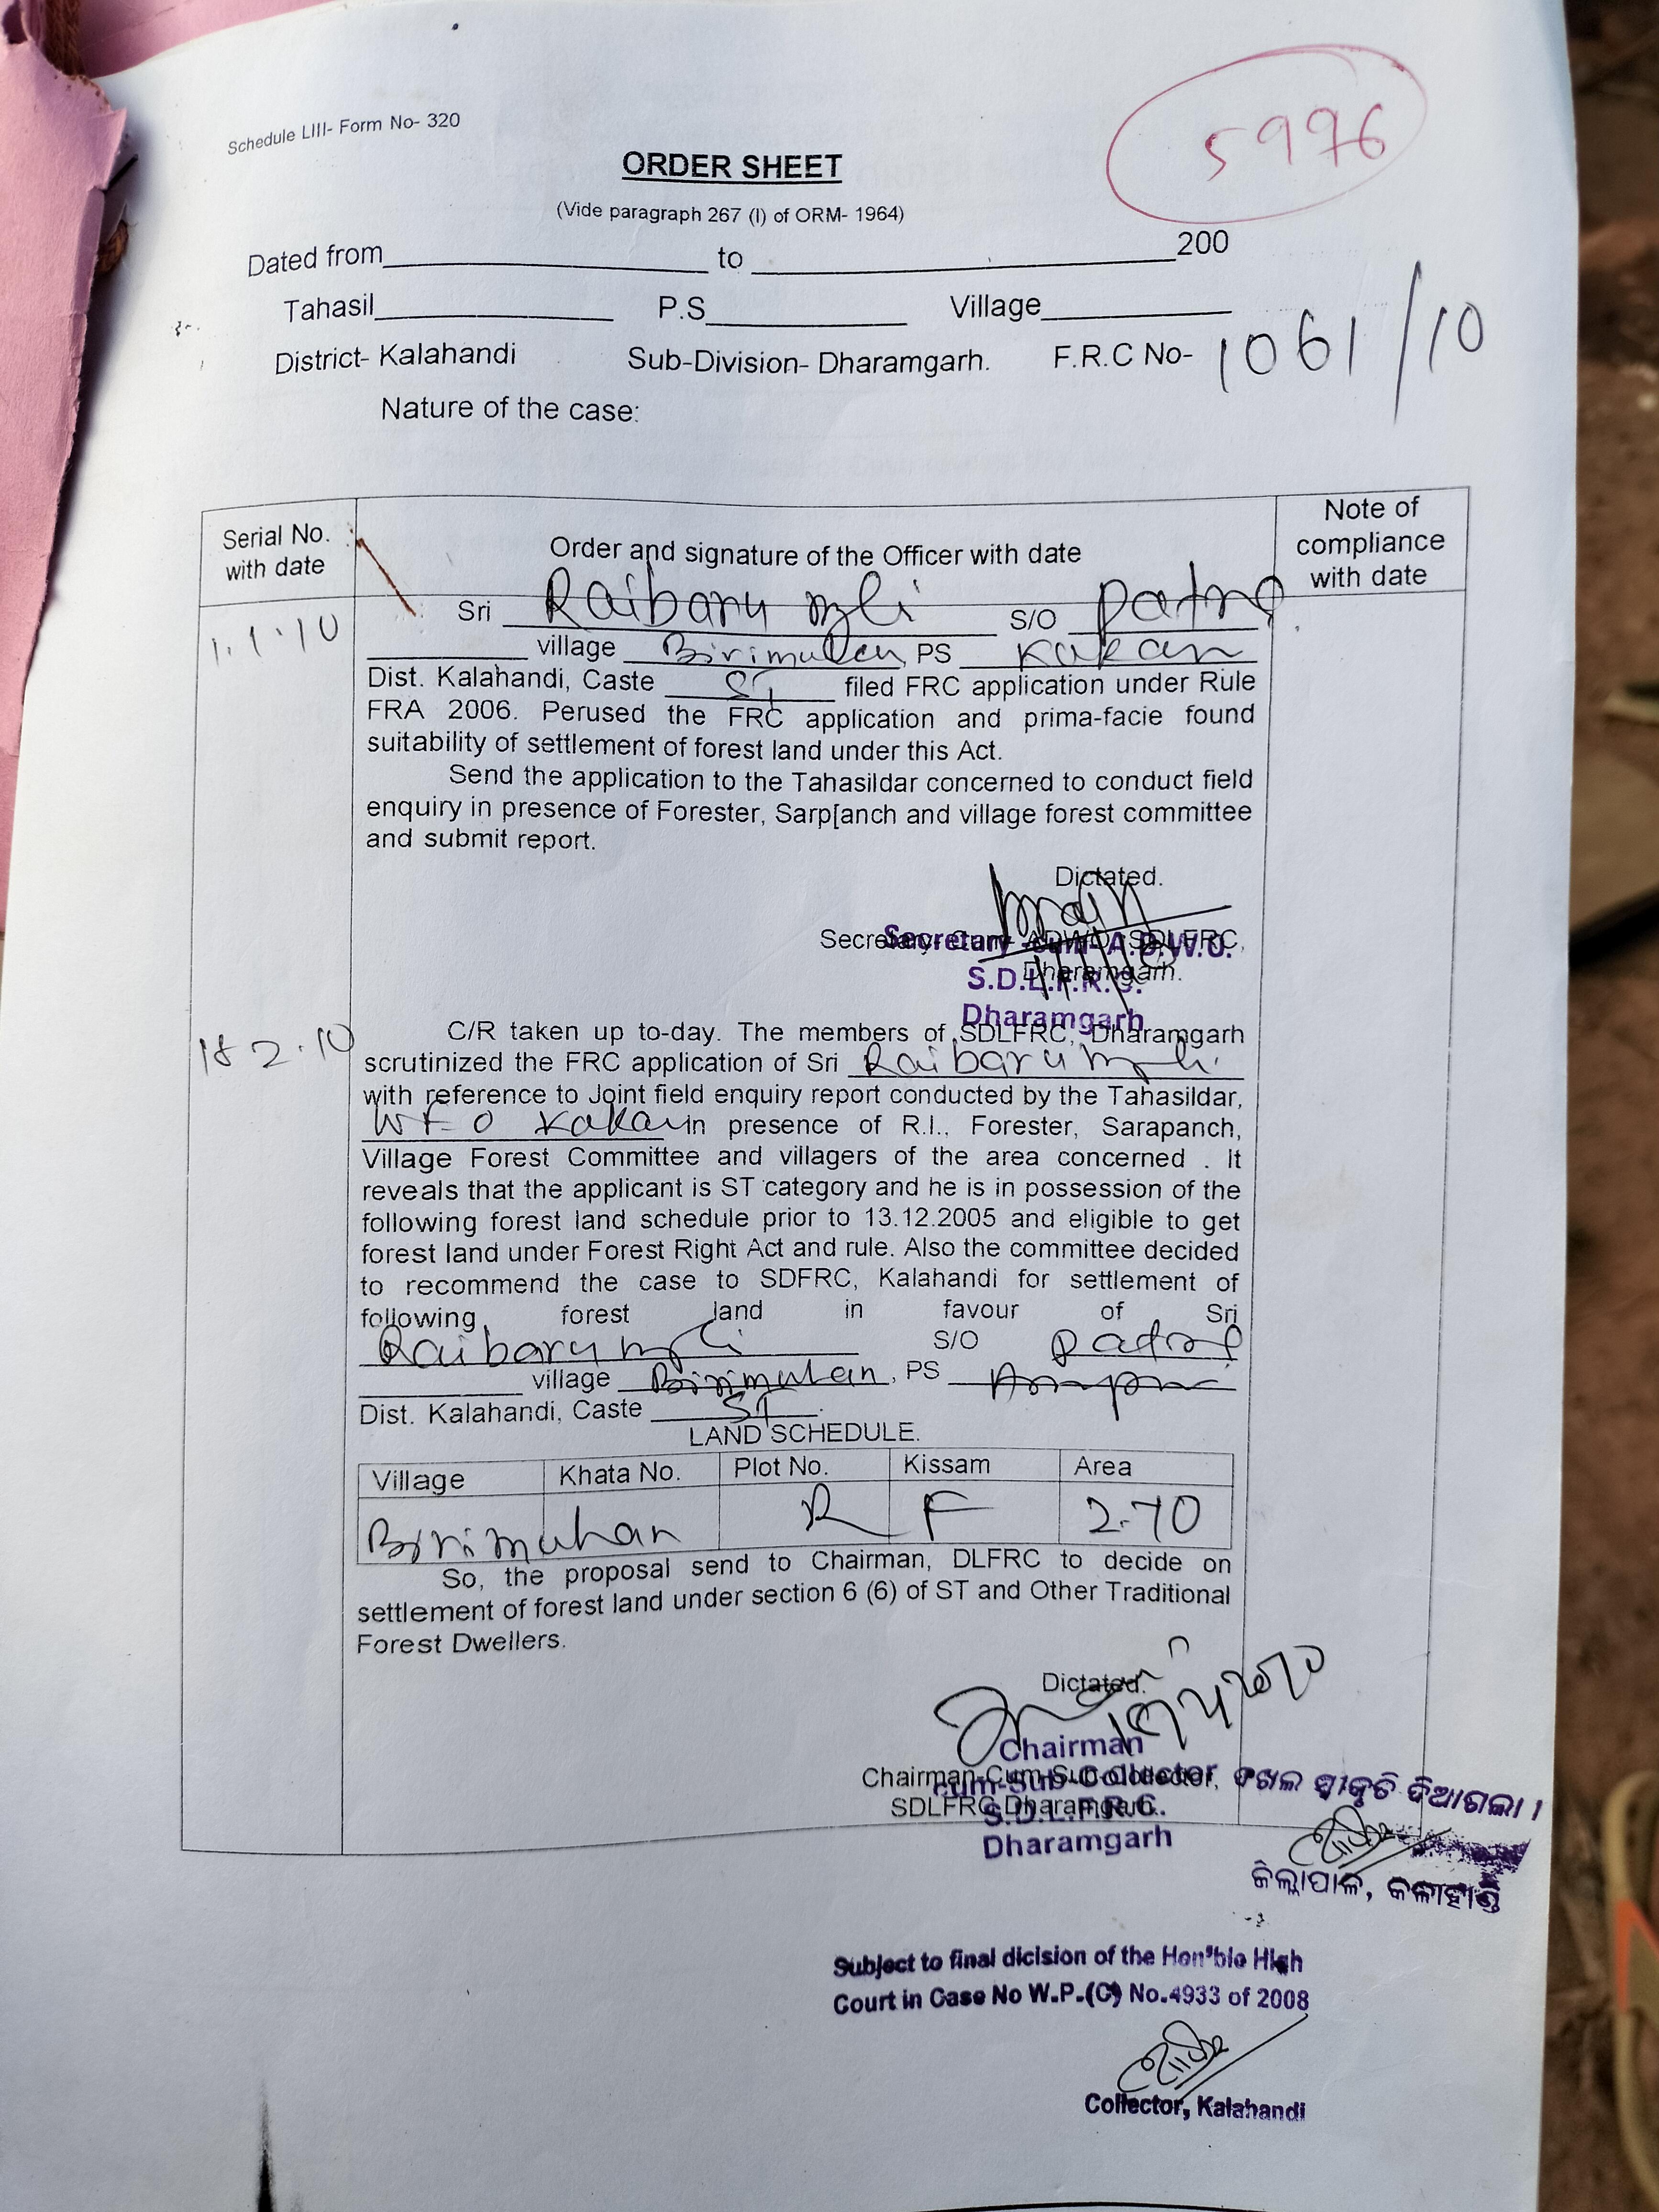 Schedule LIII- Form No- 320
5976
ORDER SHEET
(Vide paragraph 267 (I) of ORM- 1964)
Dated from to 200
Tahasil P.S Village
District- Kalahandi Sub-Division- Dharamgarh. F.R.C No- 1061/10
Nature of the case:
Serial No. with date
Order and signature of the Officer with date
Note of compliance with date
1.1.10
Sri Raibaru S/O
village PS
Dist. Kalahandi, Caste ST filed FRC application under Rule
FRA 2006. Perused the FRC application and prima-facie found
suitability of settlement of forest land under this Act.
Send the application to the Tahasildar concerned to conduct field
enquiry in presence of Forester, Sarp[anch and village forest committee
and submit report.
Dictated.
Secretary-Cum-ADWO, SDLFRC,
Dharamgarh.
Secretary -cum- A.D.W.O.
S.D.L.F.R.C.
Dharamgarh
18 2.10
C/R taken up to-day. The members of SDLFRC, Dharamgarh
scrutinized the FRC application of Sri Raibaru
with reference to Joint field enquiry report conducted by the Tahasildar,
in presence of R.I., Forester, Sarapanch,
Village Forest Committee and villagers of the area concerned . It
reveals that the applicant is ST category and he is in possession of the
following forest land schedule prior to 13.12.2005 and eligible to get
forest land under Forest Right Act and rule. Also the committee decided
to recommend the case to SDFRC, Kalahandi for settlement of
following forest land in favour of Sri
Raibaru S/O
village PS
Dist. Kalahandi, Caste ST.
LAND SCHEDULE.
Village Khata No. Plot No. Kissam Area
Birimuhan R F 2.70
So, the proposal send to Chairman, DLFRC to decide on
settlement of forest land under section 6 (6) of ST and Other Traditional
Forest Dwellers.
Dictated.
Chairman-Cum-Sub-Collector,
SDLFRC, Dharamgarh.
Chairman
cum-Sub-Collector
S.D.L.F.R.C.
Dharamgarh
ଦଖଲ ସ୍ୱୀକୃତି ଦିଆଗଲା ।
ଜିଲ୍ଲାପାଳ, କଳାହାଣ୍ଡି
Subject to final dicision of the Hon'ble High
Court in Case No W.P.(C) No.4933 of 2008
Collector, Kalahandi